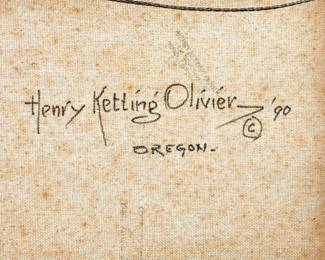 Henry Ketting Olivier '90
©
OREGON.-